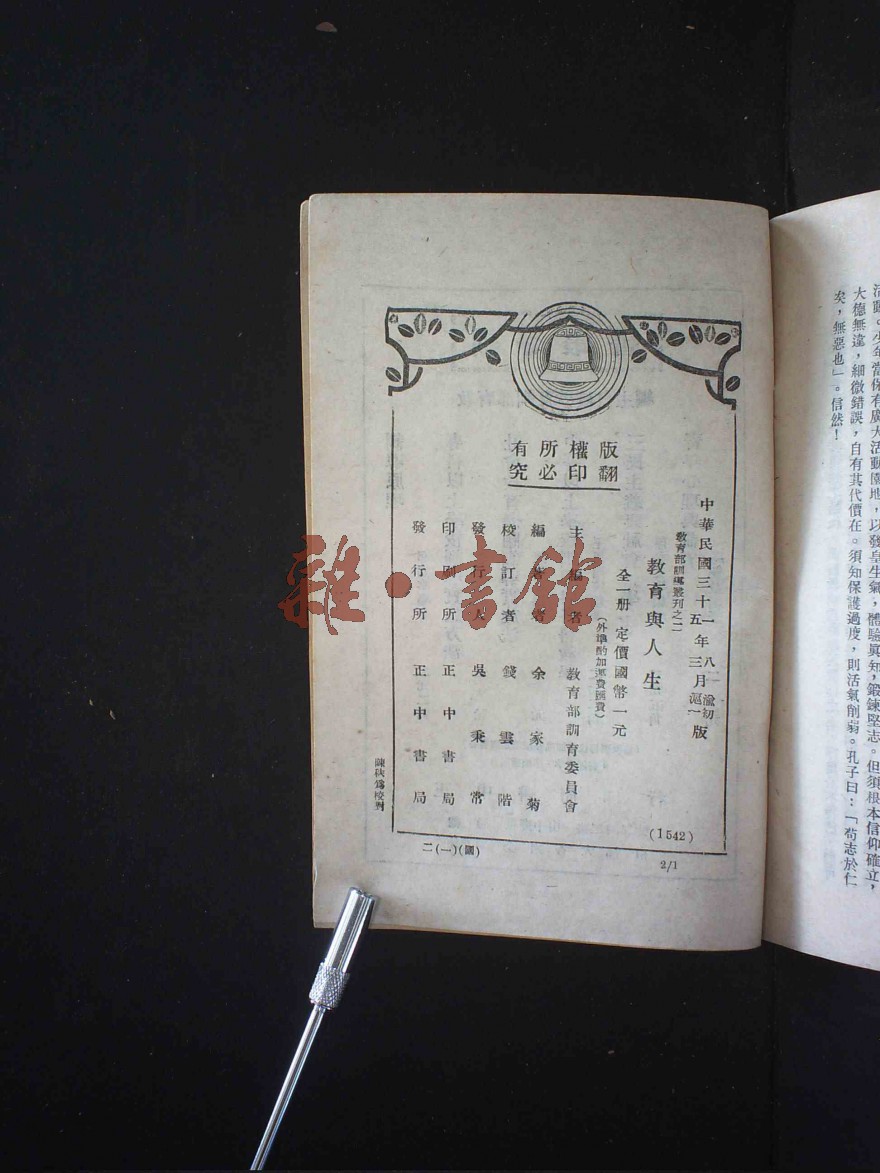 活動。少年當保有廣大活動園地，以發皇生氣，體驗眞知，鍛鍊堅志。但須根本信仰確立，
大德無違，細微錯誤，自有其代價在。須知保護過度，則活氣削弱。孔子曰：「苟志於仁
矣，無惡也」。信然！
版權所有
翻印必究
中華民國三十一年八月渝初版
五年三月滬一版
教育部訓導叢刊之二
教育與人生
全一册 定價國幣一元
（外埠酌加運費匯費）
主編者 教育部訓育委員會
編著者 余家菊
校訂者 錢雲階
發行人 吳秉常
印刷所 正中書局
發行所 正中書局
(1542)
校對
二(一)(圖)
2/1
雜·書館